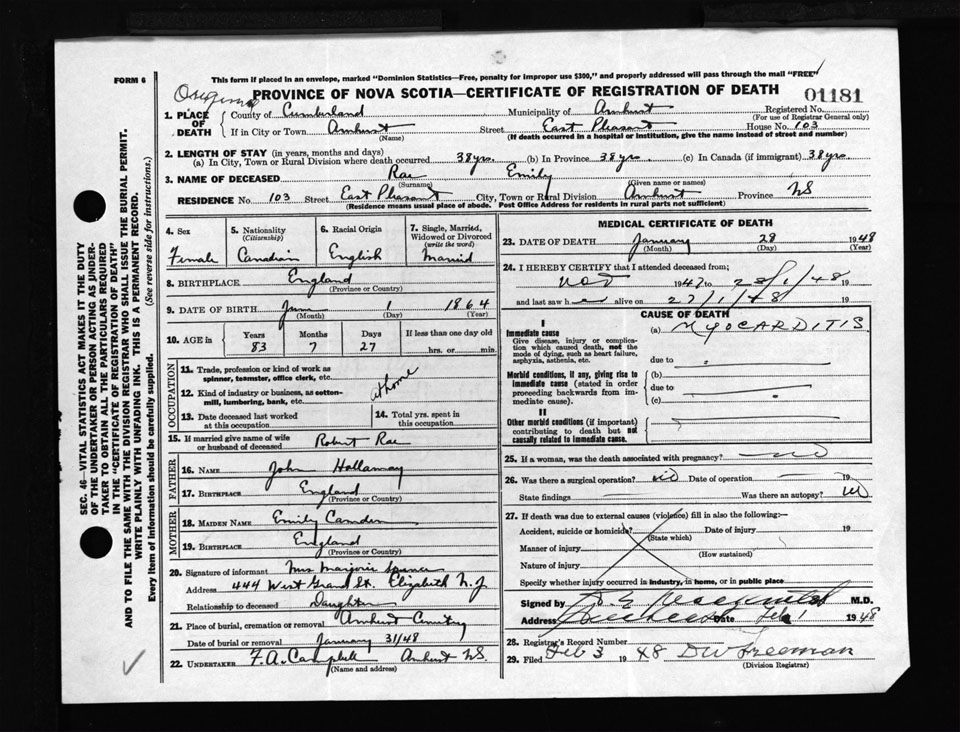 FORM 6
This form if placed in an envelope, marked "Dominion Statistics—Free, penalty for improper use $300," and properly addressed will pass through the mail "FREE"
Original
PROVINCE OF NOVA SCOTIA—CERTIFICATE OF REGISTRATION OF DEATH
01181
1. PLACE OF DEATH
County of Cumberland Municipality of Amherst Registered No.
(For use of Registrar General only)
If in City or Town Amherst Street East Pleasant House No. 103
(Name) (If death occurred in a hospital or institution, give the name instead of street and number)
2. LENGTH OF STAY (in years, months and days)
(a) In City, Town or Rural Division where death occurred 38 yrs. (b) In Province 38 yrs. (c) In Canada (if immigrant) 38 yrs.
3. NAME OF DECEASED Rae Emily
(Surname) (Given name or names)
RESIDENCE No. 103 Street East Pleasant City, Town or Rural Division Amherst Province NS
(Residence means usual place of abode. Post Office Address for residents in rural parts not sufficient)
4. Sex
Female
5. Nationality
(Citizenship)
Canadian
6. Racial Origin
English
7. Single, Married, Widowed or Divorced
(write the word)
Married
8. BIRTHPLACE England
(Province or Country)
9. DATE OF BIRTH June 1 1864
(Month) (Day) (Year)
10. AGE in
Years Months Days If less than one day old
83 7 27 hrs. or min.
OCCUPATION
11. Trade, profession or kind of work as spinner, teamster, office clerk, etc.
at home
12. Kind of industry or business, as cotton-mill, lumbering, bank, etc.
13. Date deceased last worked at this occupation
14. Total yrs. spent in this occupation
15. If married give name of wife or husband of deceased Robert Rae
FATHER
16. NAME John Hallamay
17. BIRTHPLACE England
(Province or Country)
MOTHER
18. MAIDEN NAME Emily Camden
19. BIRTHPLACE England
(Province or Country)
20. Signature of informant Mrs Marjorie Spence
Address 444 West Grand St. Elizabeth N.J
Relationship to deceased Daughter
21. Place of burial, cremation or removal Amherst Cemetery
Date of burial or removal January 31/48
22. UNDERTAKER F.A. Campbell Amherst NS.
(Name and address)
MEDICAL CERTIFICATE OF DEATH
23. DATE OF DEATH January 28 1948
(Month) (Day) (Year)
24. I HEREBY CERTIFY that I attended deceased from;
Nov 1947 to 28/1/48 19
and last saw h alive on 27/1/48 19
CAUSE OF DEATH
I
Immediate cause (a) MYOCARDITIS
Give disease, injury or complication which caused death, not the mode of dying, such as heart failure, asphyxia, asthenia, etc.
due to
Morbid conditions, if any, giving rise to immediate cause (stated in order proceeding backwards from immediate cause).
(b)
due to
(c)
II
Other morbid conditions (if important) contributing to death but not causally related to immediate cause.
25. If a woman, was the death associated with pregnancy? no
26. Was there a surgical operation? no Date of operation 19
State findings Was there an autopsy? no
27. If death was due to external causes (violence) fill in also the following:-
Accident, suicide or homicide? Date of injury 19
(State which)
Manner of injury
(How sustained)
Nature of injury
Specify whether injury occurred in industry, in home, or in public place
Signed by M.D.
Address Amherst Date Feb 1 1948
28. Registrar's Record Number
29. Filed Feb 3 1948 DW Freeman
(Division Registrar)
SEC. 46—VITAL STATISTICS ACT MAKES IT THE DUTY
OF THE UNDERTAKER OR PERSON ACTING AS UNDER-
TAKER TO OBTAIN ALL THE PARTICULARS REQUIRED
IN THE "CERTIFICATE OF REGISTRATION OF DEATH"
AND TO FILE THE SAME WITH THE DIVISION REGISTRAR WHO SHALL ISSUE THE BURIAL PERMIT.
WRITE PLAINLY WITH UNFADING INK. THIS IS A PERMANENT RECORD.
Every item of information should be carefully supplied. (See reverse side for instructions.)